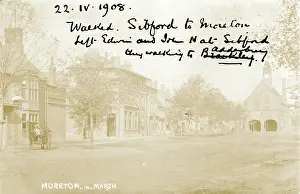 22. IV. 1908.
Walked. Sibford to Moreton
Left Edwin and Ivor H at Sibford
they walking to Adderbury
MORETON, in MARSH